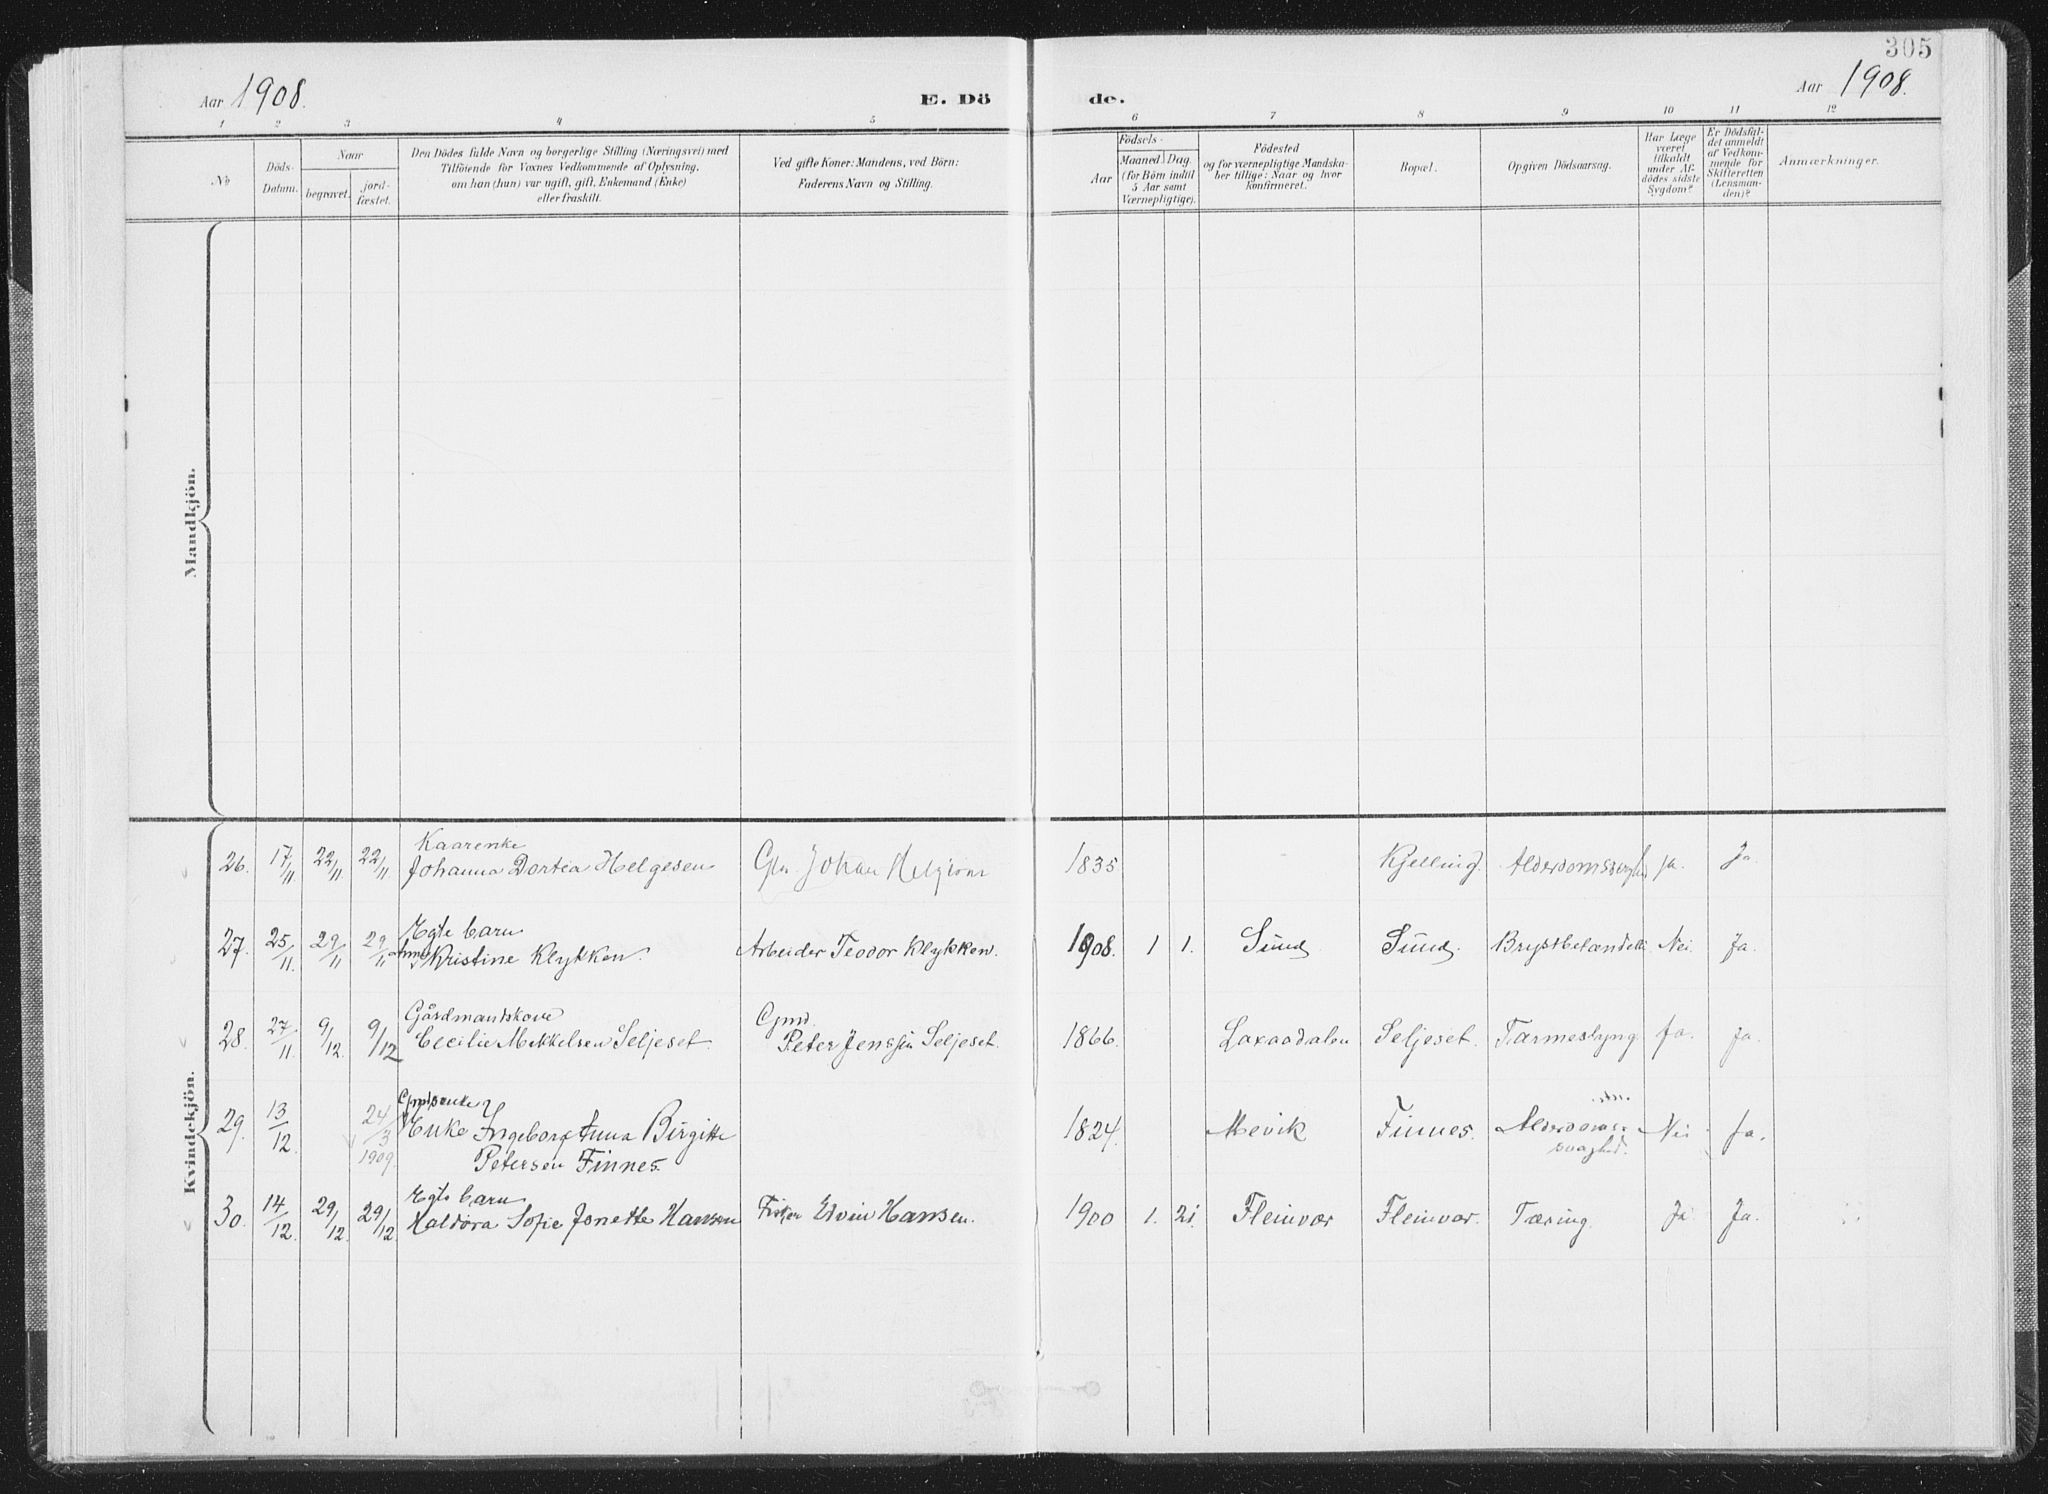 305
Aar 1908.
E. Dö
de.
Aar 1908.
1 2 3 4 5 6 7 8 9 10 11 12
No
Döds-
Datum.
Naar
begravet.
jord-
fæstet.
Den Dödes fulde Navn og borgerlige Stilling (Næringsvei) med
Tilföiende for Voxnes Vedkommende af Oplysning,
om han (hun) var ugift, gift, Enkemand (Enke)
eller fraskilt.
Ved gifte Koner: Mandens, ved Börn:
Faderens Navn og Stilling.
Födsels-
Aar
Maaned Dag.
(for Börn indtil
5 Aar samt
Værnepligtige).
Födested
og for værnepligtige Mandska-
ber tillige: Naar og hvor
konfirmeret.
Bopæl.
Opgiven Dödsaarsag.
Har Læge
været
tilkaldt
under Af-
dödes sidste
Sygdom?
Er Dödsfal-
det anmeldt
af Vedkom-
mende for
Skifteretten
(Lensman-
den)?
Anmærkninger.
Mandkjön.
Kvindekjön.
Kaarenke
26. 17/11 22/11 22/11 Johanna Dortea Helgesen Johan 1835 Kjelling. ja. Ja.
Egte barn
27. 25/11. 29/11 29/11 Anna Kristine Klykken. Arbeider Teodor Klykken. 1908. 1 1. Sund Sund. Nei Ja.
Gårdmandskone Gmd.
28. 27/11. 9/12. 9/12 Cecilie Mikkelsen Seljeset. Peter Seljeset. 1866. Laxaadalen Seljeset. Tarmeslyng ja. ja.
29. 13/12. 24/3 1909. Enke Ingeborg Anna Birgitte 1824. Mevik Finnes. Alderdoms- Nei ja.
Petersen Finnes. svaghed.
Egte barn
30. 14/12. 29/12. 29/12 Haldora Sofie Jonette Hansen Fisker Edvin Hansen. 1900 1. 21. Fleinvær Fleinvær. Tæring. Ja Ja.